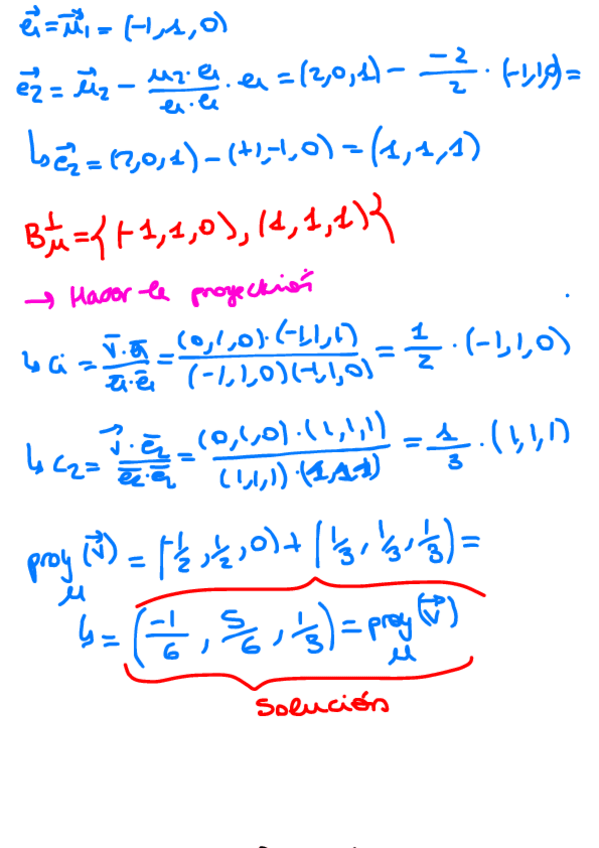 e⃗₁ = μ⃗₁ = (-1,1,0)
e⃗₂ = μ⃗₂ - (μ₂·e₁)/(e₁·e₁) · e₁ = (2,0,1) - (-2)/2 · (-1,1,0) =
↳ e⃗₂ = (2,0,1) - (+1,-1,0) = (1,1,1)
B⊥μ = {(-1,1,0), (1,1,1)}
→ Hacer la proyección
↳ c₁ = (v̄·ē₁)/(ē₁·ē₁) = (0,1,0)·(-1,1,1)/(-1,1,0)(-1,1,0) = 1/2 · (-1,1,0)
↳ c₂ = (v⃗·ē₂)/(ē₂·ē₂) = (0,1,0)·(1,1,1)/(1,1,1)·(1,1,1) = 1/3 · (1,1,1)
proy μ (v⃗) = (-1/2, 1/2, 0) + (1/3, 1/3, 1/3) =
↳ = (-1/6, 5/6, 1/3) = proy μ (v⃗)
Solución